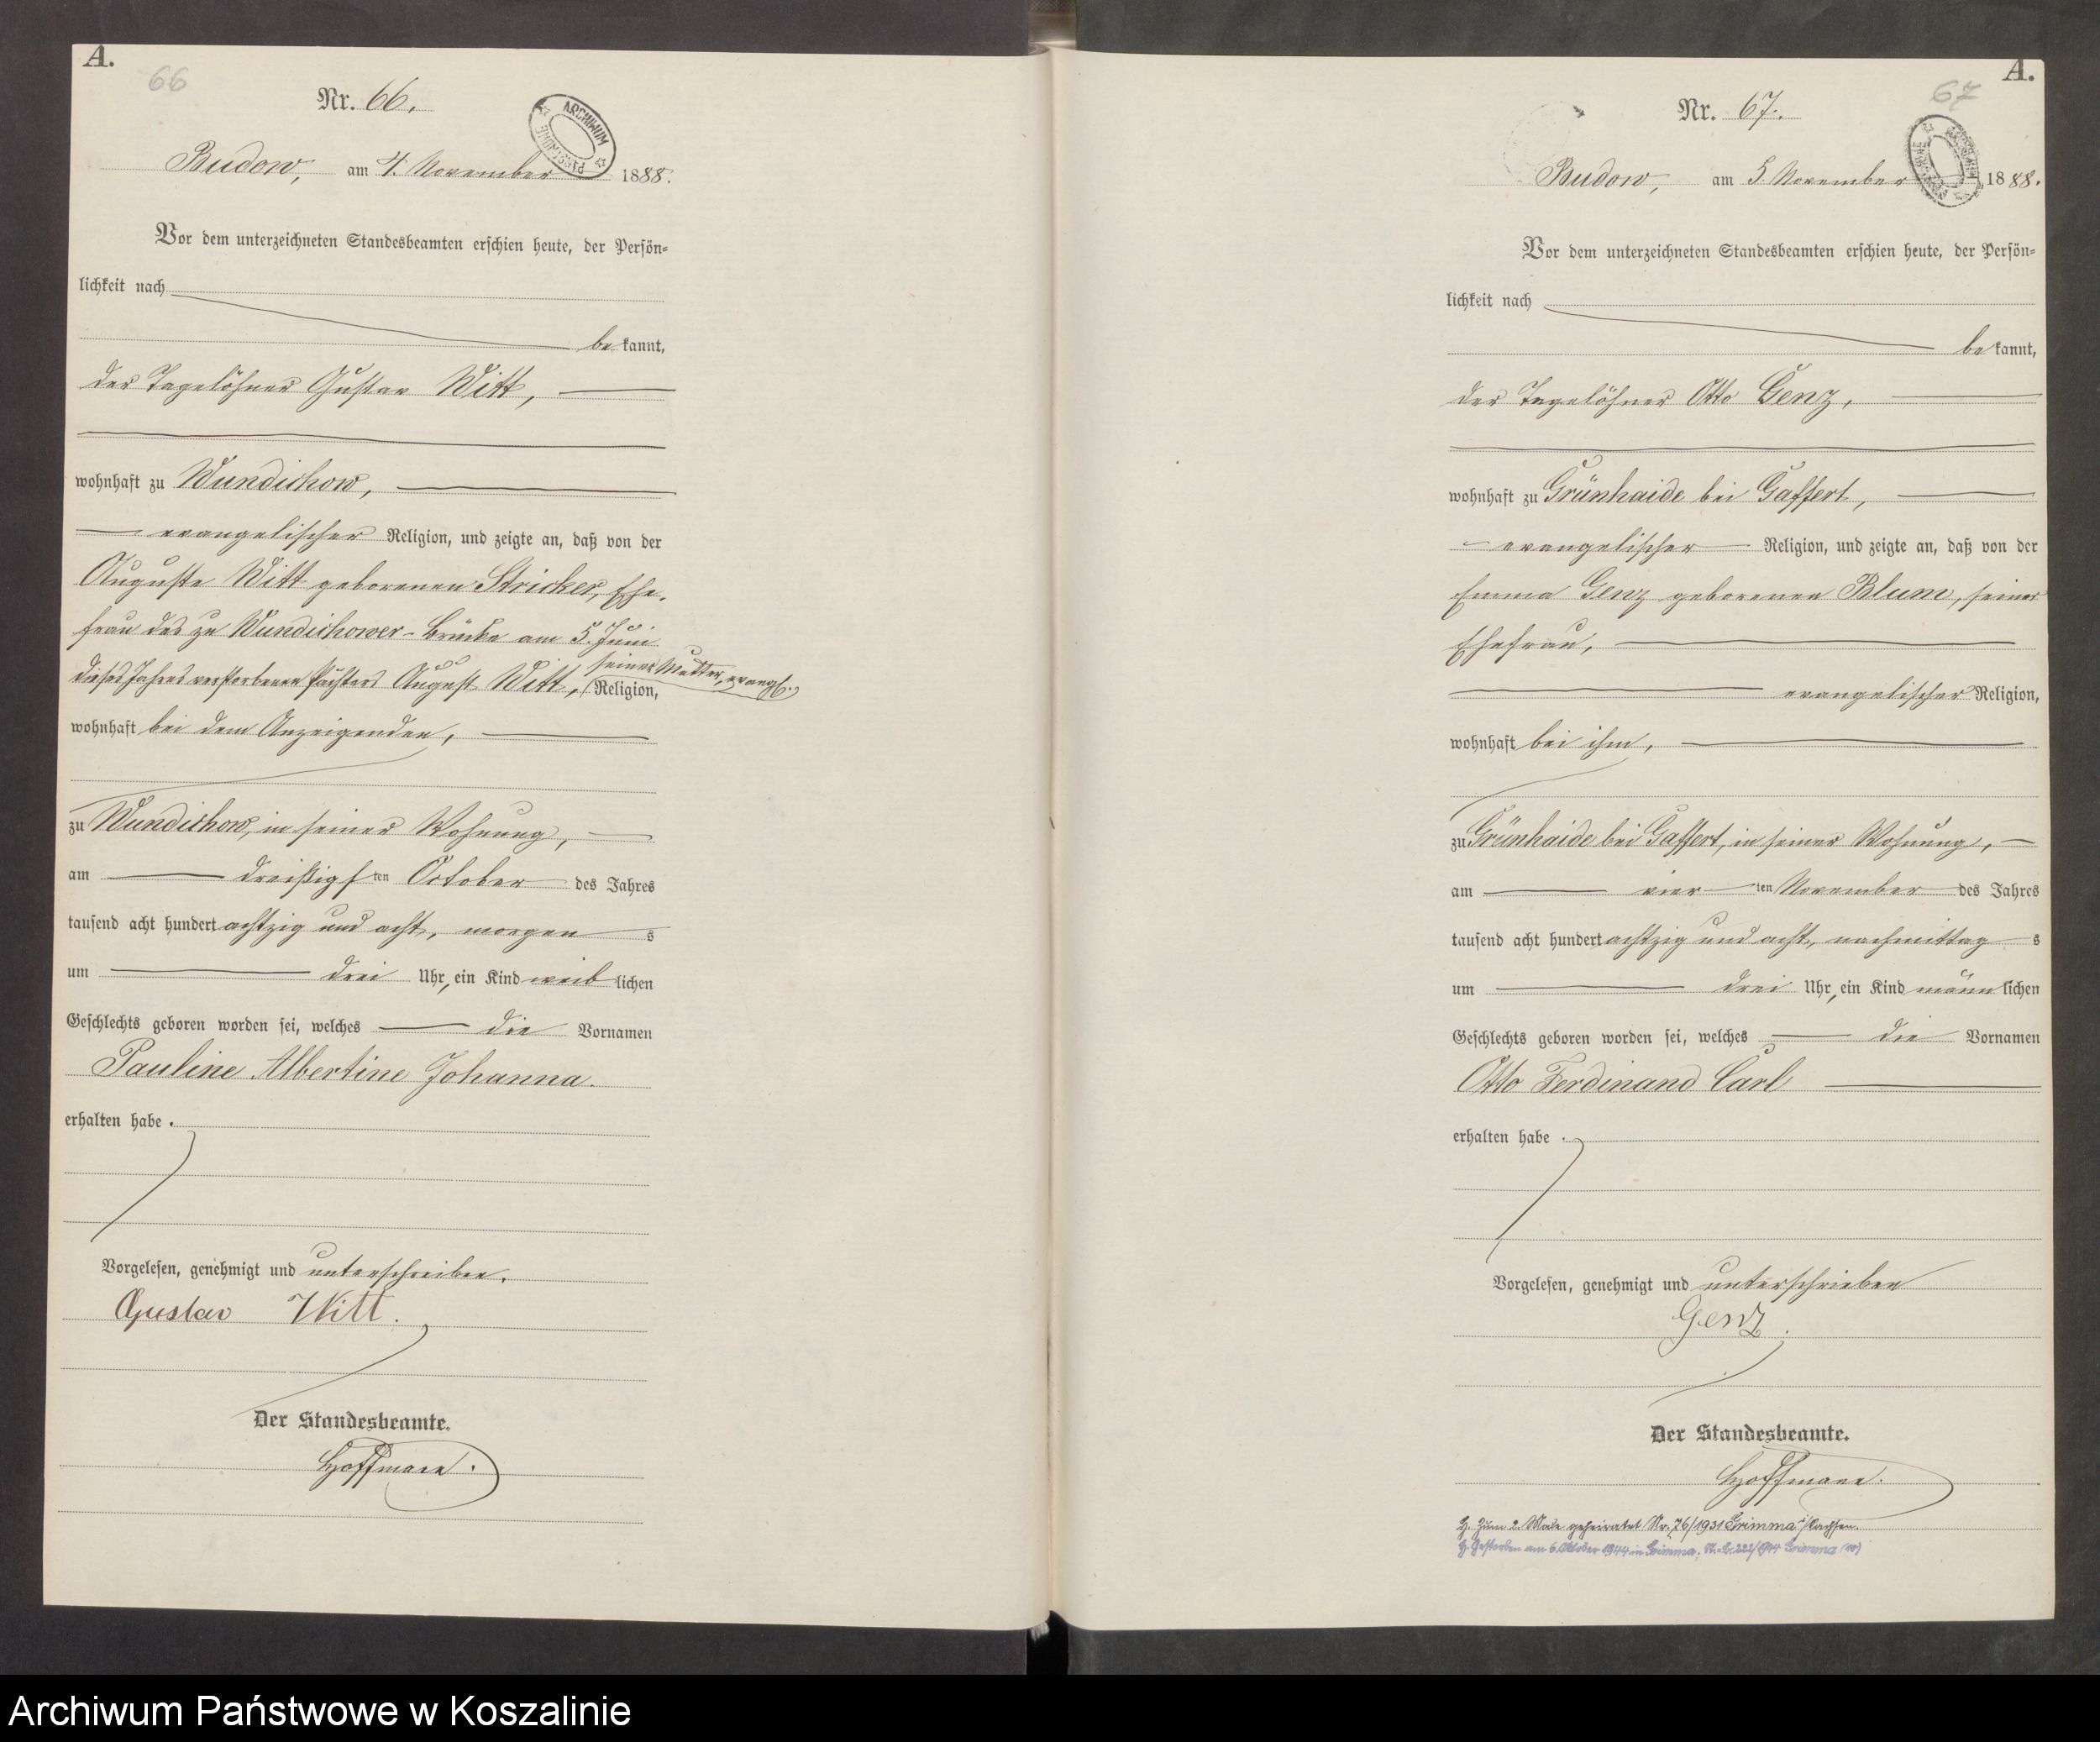 A.
66
Nr. 66.
ARCHIWUM PAŃSTWOWE
Budow, am 4. November 1888.
Vor dem unterzeichneten Standesbeamten erschien heute, der Persön=
lichkeit nach
be kannt,
der Tagelöhner Gustav Witt,
wohnhaft zu Wundichow,
evangelischer Religion, und zeigte an, daß von der
Auguste Witt geborenen Stricker, Ehe-
frau des zu Wundichower-Brücke am 5. Juni
dieses Jahres verstorbenen Pächters August Witt, seiner Mutter, evangl. Religion,
wohnhaft bei dem Anzeigenden,
zu Wundichow, in seiner Wohnung,
am dreißigsten October des Jahres
tausend acht hundert achtzig und acht, morgens
um drei Uhr, ein Kind weiblichen
Geschlechts geboren worden sei, welches die Vornamen
Pauline Albertine Johanna.
erhalten habe.
Vorgelesen, genehmigt und unterschrieben.
Gustav Witt.
Der Standesbeamte.
Hoffmann.
A.
67
Nr. 67.
Budow, am 5 November 1888.
Vor dem unterzeichneten Standesbeamten erschien heute, der Persön=
lichkeit nach
be kannt,
der Tagelöhner Otto Genz,
wohnhaft zu Grünhaide bei Gaffert,
evangelischer Religion, und zeigte an, daß von der
Emma Genz geborenen Blum, seiner
Ehefrau,
evangelischer Religion,
wohnhaft bei ihm,
zu Grünhaide bei Gaffert, in seiner Wohnung,
am vierten November des Jahres
tausend acht hundert achtzig und acht, nachmittags
um drei Uhr, ein Kind männlichen
Geschlechts geboren worden sei, welches die Vornamen
Otto Ferdinand Carl
erhalten habe.
Vorgelesen, genehmigt und unterschrieben
Genz.
Der Standesbeamte.
Hoffmann.
H. Zum 2. Male geheiratet Nr. 76/1931 Grimma i/Sachsen.
Gestorben am 6. Oktober 1944 in Grimma. St. A. 222/1944 Grimma
Archiwum Państwowe w Koszalinie